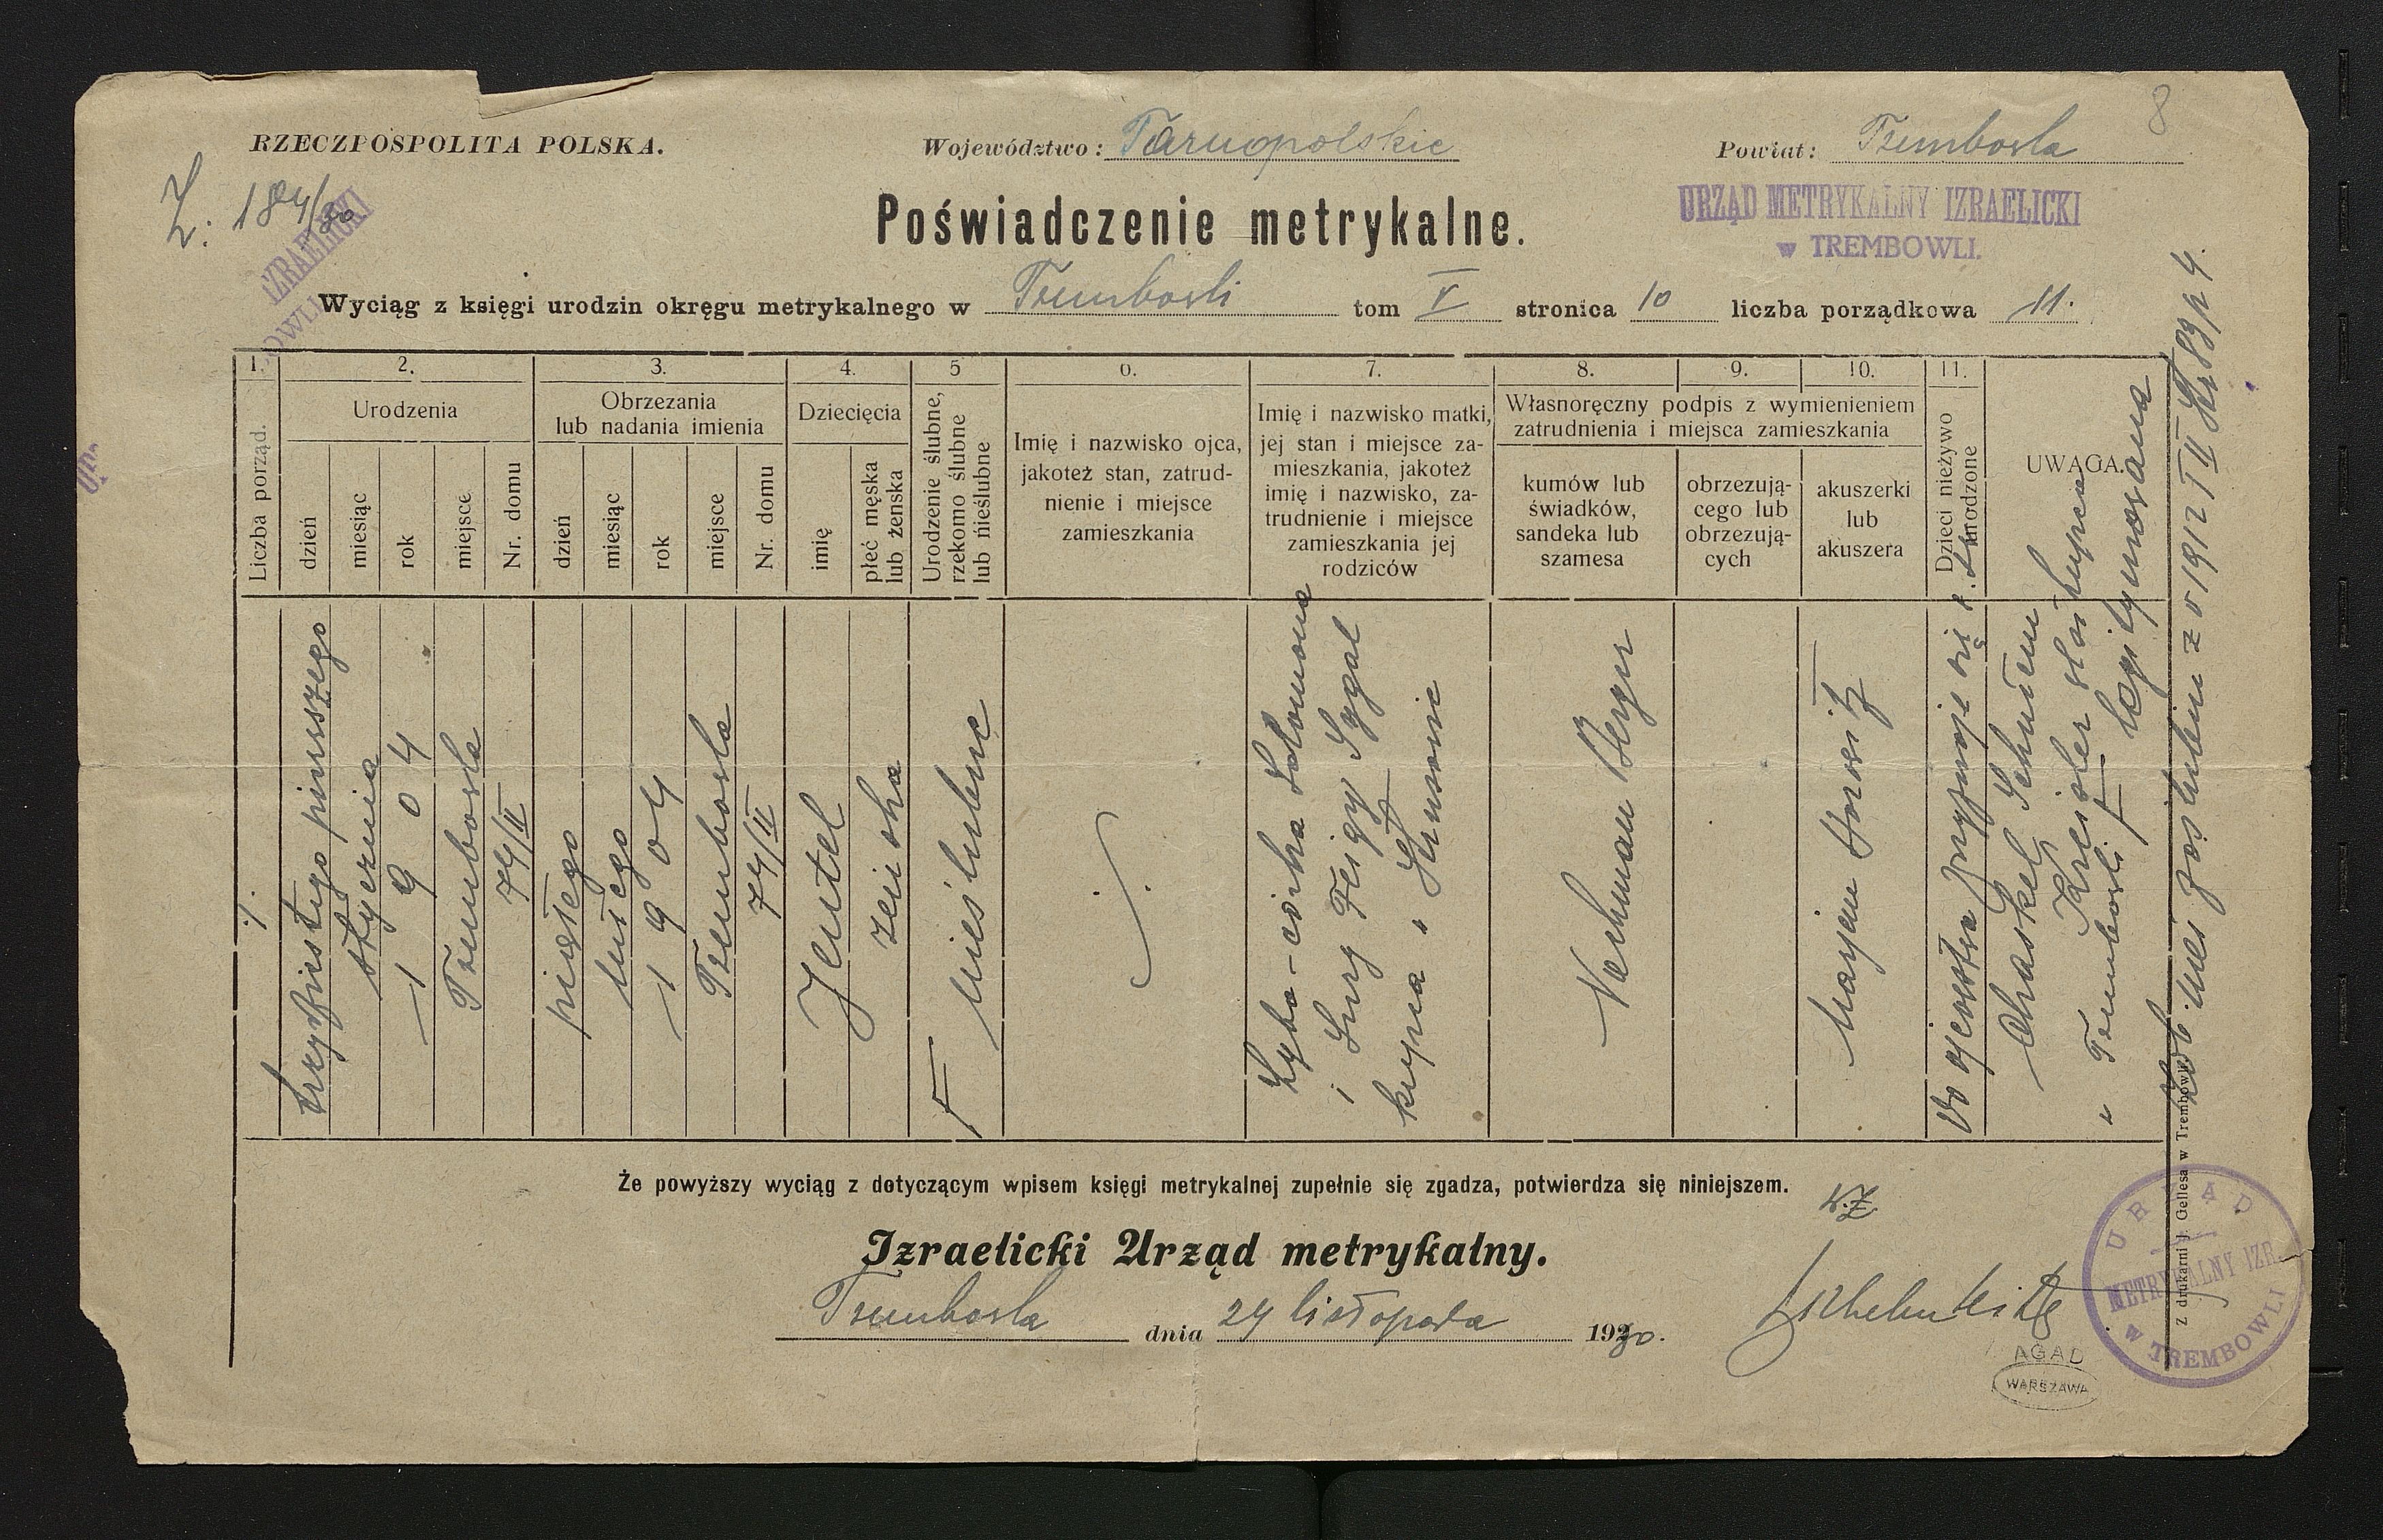 8
RZECZPOSPOLITA POLSKA.
Województwo: Tarnopolskie
Powiat: Trembowla
L: 184/30
IZRAELICKI
OWLI
Poświadczenie metrykalne.
URZĄD METRYKALNY IZRAELICKI
w TREMBOWLI.
Wyciąg z księgi urodzin okręgu metrykalnego w Trembowli tom V stronica 10 liczba porządkowa 11.
1.
2.
3.
4.
5
6.
7.
8.
9.
10.
11.
Liczba porząd.
Urodzenia
dzień
miesiąc
rok
miejsce
Nr. domu
Obrzezania
lub nadania imienia
dzień
miesiąc
rok
miejsce
Nr. domu
Dziecięcia
imię
płeć męska
lub żeńska
Urodzenie ślubne,
rzekomo ślubne
lub nieślubne
Imię i nazwisko ojca,
jakoteż stan, zatrud-
nienie i miejsce
zamieszkania
Imię i nazwisko matki,
jej stan i miejsce za-
mieszkania, jakoteż
imię i nazwisko, za-
trudnienie i miejsce
zamieszkania jej
rodziców
Własnoręczny podpis z wymienieniem
zatrudnienia i miejsca zamieszkania
kumów lub
świadków,
sandeka lub
szamesa
obrzezują-
cego lub
obrzezują-
cych
akuszerki
lub
akuszera
Dzieci nieżywo
urodzone
UWAGA.
trzydziestego pierwszego
stycznia
1904
Trembowla
74/II
piątego
lutego
1904
Trembowla
74/II
Jentel
żeńska
nieślubne
Łyba - córka Salomona
i Sury Feigy Sygal
kupca w Strusowie
Nachman Berger
Marjem Horowitz
Do ojcostwa przyznaje się
Chaskel Schulem
Kreisler kupiec
w Trembowli
legitymowana
zaślubin z r 1912 T II
Że powyższy wyciąg z dotyczącym wpisem księgi metrykalnej zupełnie się zgadza, potwierdza się niniejszem.
Izraelicki Urząd metrykalny.
Trembowla dnia 24 listopada 1930.
W.Z.
URZĄD
METRYKALNY IZR.
w TREMBOWLI
Z drukarni J. Gellesa w Trembowli
AGAD
WARSZAWA